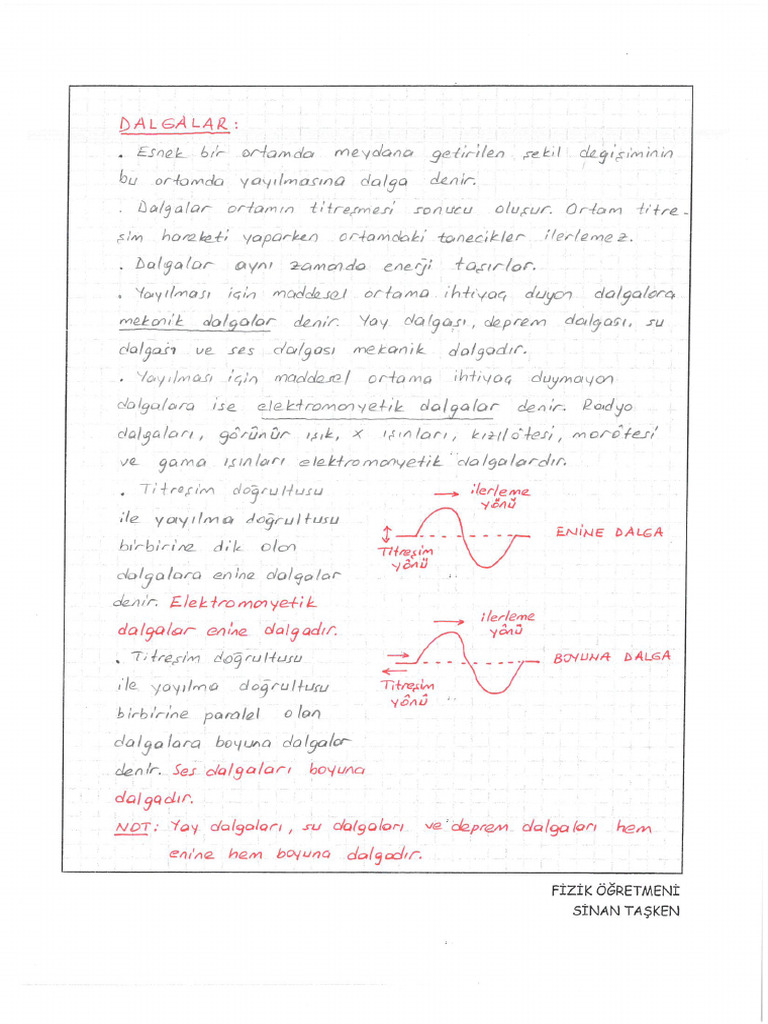 DALGALAR:
. Esnek bir ortamda meydana getirilen şekil değişiminin
bu ortamda yayılmasına dalga denir.
. Dalgalar ortamın titreşmesi sonucu oluşur. Ortam titre-
şim hareketi yaparken ortamdaki tanecikler ilerlemez.
. Dalgalar aynı zamanda enerji taşırlar.
. Yayılması için maddesel ortama ihtiyaç duyan dalgalara
mekanik dalgalar denir. Yay dalgası, deprem dalgası, su
dalgası ve ses dalgası mekanik dalgadır.
. Yayılması için maddesel ortama ihtiyaç duymayan
dalgalara ise elektromanyetik dalgalar denir. Radyo
dalgaları, görünür ışık, x ışınları, kızılötesi, morötesi
ve gama ışınları elektromanyetik dalgalardır.
. Titreşim doğrultusu
ile yayılma doğrultusu
birbirine dik olan
dalgalara enine dalgalar
denir. Elektromanyetik
dalgalar enine dalgadır.
ilerleme
yönü
Titreşim
yönü
ENİNE DALGA
. Titreşim doğrultusu
ile yayılma doğrultusu
birbirine paralel olan
dalgalara boyuna dalgalar
denir. Ses dalgaları boyuna
dalgadır.
ilerleme
yönü
Titreşim
yönü
BOYUNA DALGA
NOT: Yay dalgaları, su dalgaları ve deprem dalgaları hem
enine hem boyuna dalgadır.
FİZİK ÖĞRETMENİ
SİNAN TAŞKEN